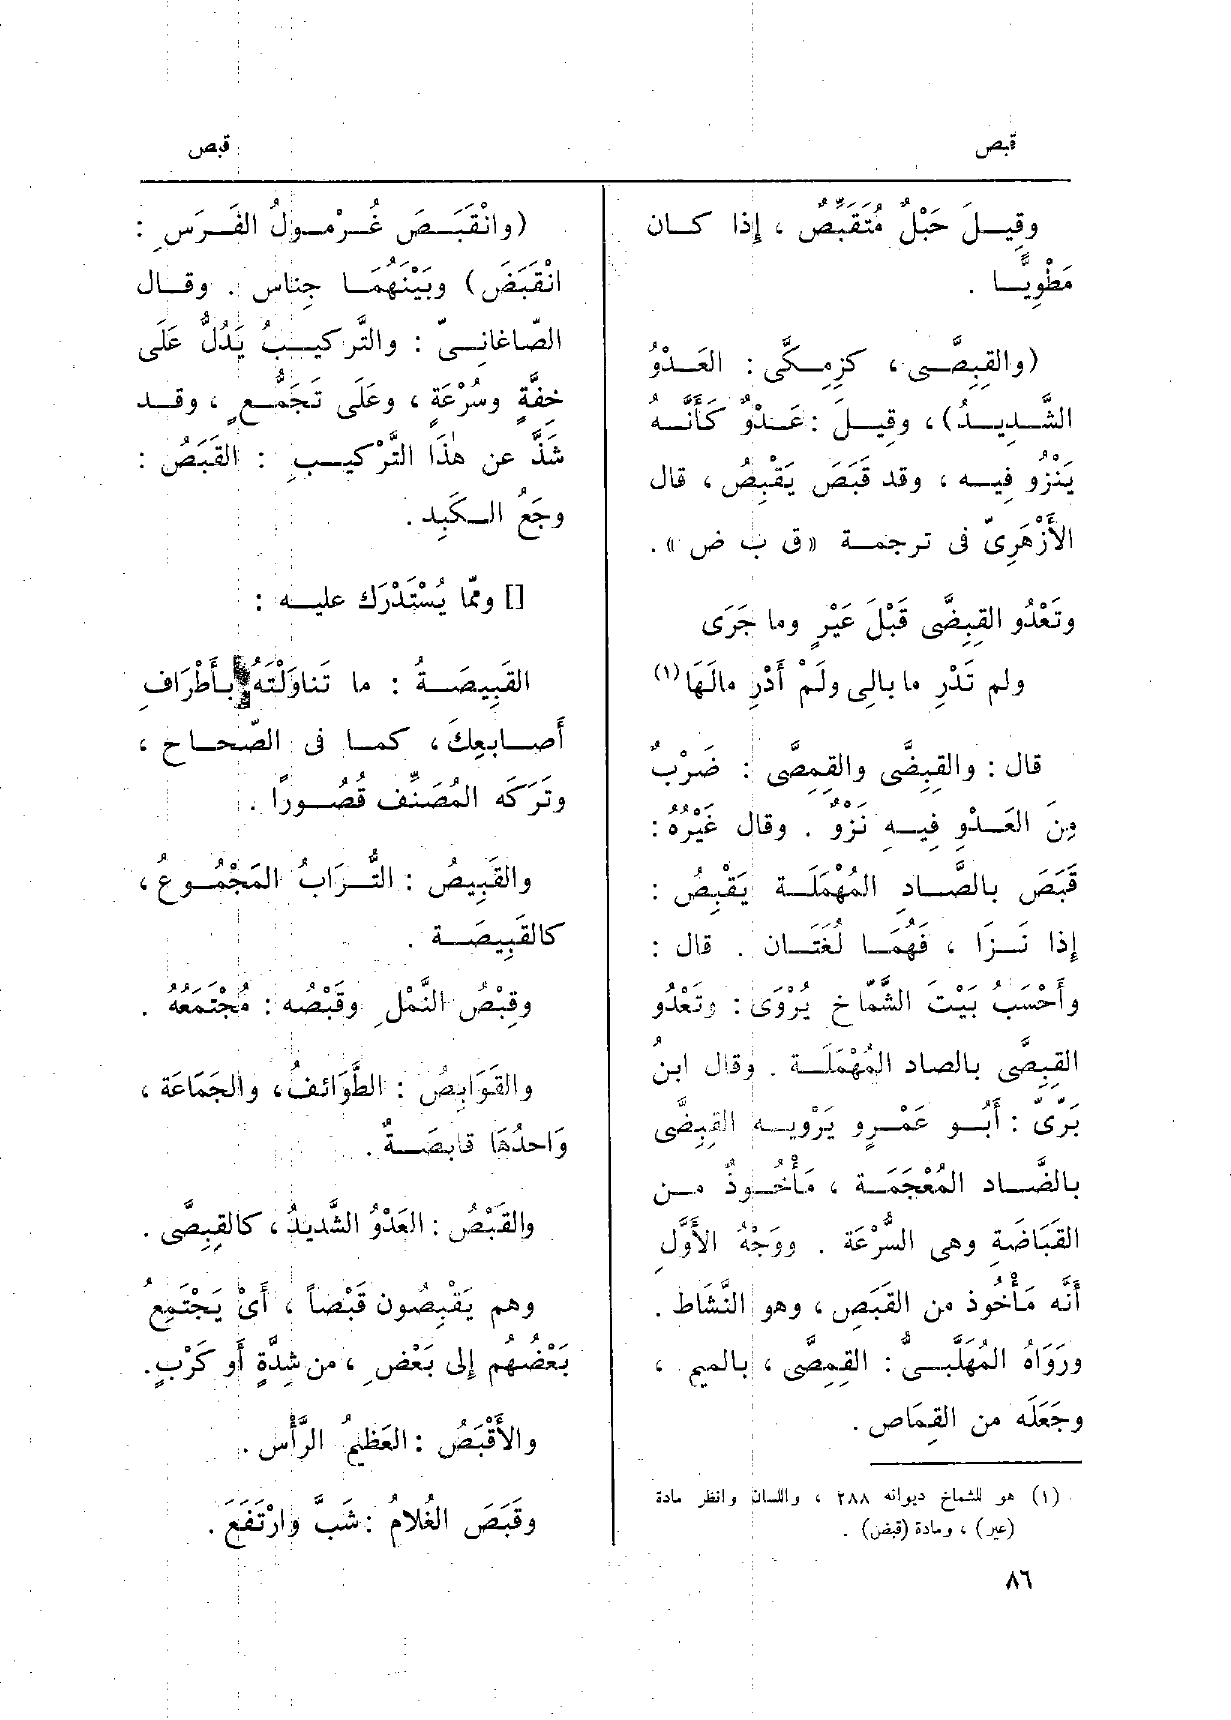 قبص
قبص
وقيــلَ حَبْلٌ مُتَقَبِّصٌ ، إِذا كــان
مَطْوِيًّــا .
(والقِبِصَّــى ، كزِمِــكَّى : العَــدْوُ
الشَّــدِيــدُ) ، وقِيــلَ : عَــدْوٌ كَأَنَّــهُ
يَنْزُو فِيــه ، وقد قَبَصَ يَقْبِصُ ، قال
الأَزْهَرِىّ فى ترجمــة «ق ب ض» .
وتَعْدُو القِبِضَّى قَبْلَ عَيْرٍ وما جَرَى
ولم تَدْرِ ما بالِى ولَمْ أَدْرِ مالَهَا (١)
قال : والقِبِضَّى والقِمِصَّى : ضَرْبٌ
مِنَ العَــدْوِ فِيــه نَزْوٌ . وقال غَيْرُهُ :
قَبَصَ بالصَّــادِ المُهْمَلَــة يَقْبِصُ :
إِذا نَــزَا ، فَهُمَــا لُغَتَــان . قال :
وأَحْسَبُ بَيْتَ الشَّمَّاخِ يُرْوَى : وتَعْدُو
القِبِصَّى بالصاد المُهْمَلَــة . وقال ابنُ
بَرِّىّ : أَبُــو عَمْــرٍو يَرْوِيــه القِبِضَّى
بالضَّــاد المُعْجَمَــة ، مَأْخُــوذٌ مــن
القَبَاضَةِ وهى السُّرْعَة . ووَجْهُ الأَوَّلِ
أَنَّه مَأْخُوذ من القَبَصِ ، وهو النَّشَاط .
ورَوَاهُ المُهَلَّبــىُّ : القِمِصَّى ، بالميم ،
وجَعَلَه من القِمَاص .
(١) هو للشماخ ديوانه ٢٨٨ ، واللسان وانظر مادة
(عير) ، ومادة (قبض) .
(وانْقَبَــصَ غُــرْمــولُ الفَــرَسِ :
انْقَبَضَ) وبَيْنَهُمَــا جِناس . وقــال
الصّاغانِــىّ : والتَّركيــبُ يَدُلُّ عَلَى
خِفَّةٍ وسُرْعَةٍ ، وعَلَى تَجَمُّــعٍ ، وقــد
شَذَّ عن هٰذَا التَّرْكيــبِ : القَبَصُ :
وجَعُ الــكَبِد .
[] وممّا يُسْتَدْرَك عليــه :
القَبِيصَــةُ : ما تَناوَلْتَهُ بأَطْرَافِ
أَصــابِعِكَ ، كمــا فى الصّحــاح ،
وتَرَكَه المُصَنِّف قُصُــوراً .
والقَبِيصُ : التُّــرَابُ المَجْمُــوعُ ،
كالقَبِيصَــة .
وقِبْصُ النَّمْلِ وقَبْصُه : مُجْتَمَعُهُ .
والقَوَابِصُ : الطَّوَائفُ ، والجَمَاعَة ،
وَاحدُهَا قابِصَــةٌ .
والقَبْصُ : العَدْوُ الشَّديدُ ، كالقِبِصَّى .
وهم يَقْبِصُون قَبْصاً ، أَىْ يَجْتَمِعُ
بَعْضُهُم إِلى بَعْضٍ ، من شِدَّةٍ أَو كَرْبٍ .
والأَقْبَصُ : العَظيمُ الرَّأْس .
وقَبَصَ الغُلامُ : شَبَّ وارْتَفَعَ .
٨٦